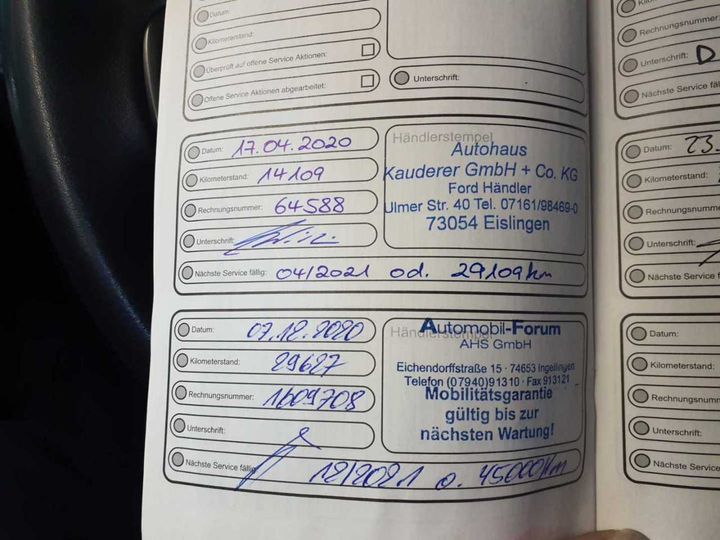 Datum:
Kilometerstand:
Überprüft auf offene Service Aktionen:
Offene Service Aktionen abgearbeitet:
Unterschrift:
Datum: 17.04.2020
Kilometerstand: 14109
Rechnungsnummer: 64588
Unterschrift:
Nächste Service fällig: 04/2021 od. 29109km
Händlerstempel
Autohaus
Kauderer GmbH + Co. KG
Ford Händler
Ulmer Str. 40 Tel. 07161/98469-0
73054 Eislingen
Datum: 07.12.2020
Kilometerstand: 29627
Rechnungsnummer: 1609708
Unterschrift:
Nächste Service fällig: 12/2021 o. 45000km
Händlerstempel
Automobil-Forum
AHS GmbH
Eichendorffstraße 15 · 74653 Ingelfingen
Telefon (07940)91310 · Fax 913121
Mobilitätsgarantie
gültig bis zur
nächsten Wartung!
Rechnungsnummer:
Unterschrift: D
Nächste Service
Datum: 23.
Kilometerstand:
Rechnungsnummer
Unterschrift:
Nächste Service f
Datum:
Kilometerstand:
Rechnungsnumm
Unterschrift:
Nächste Service